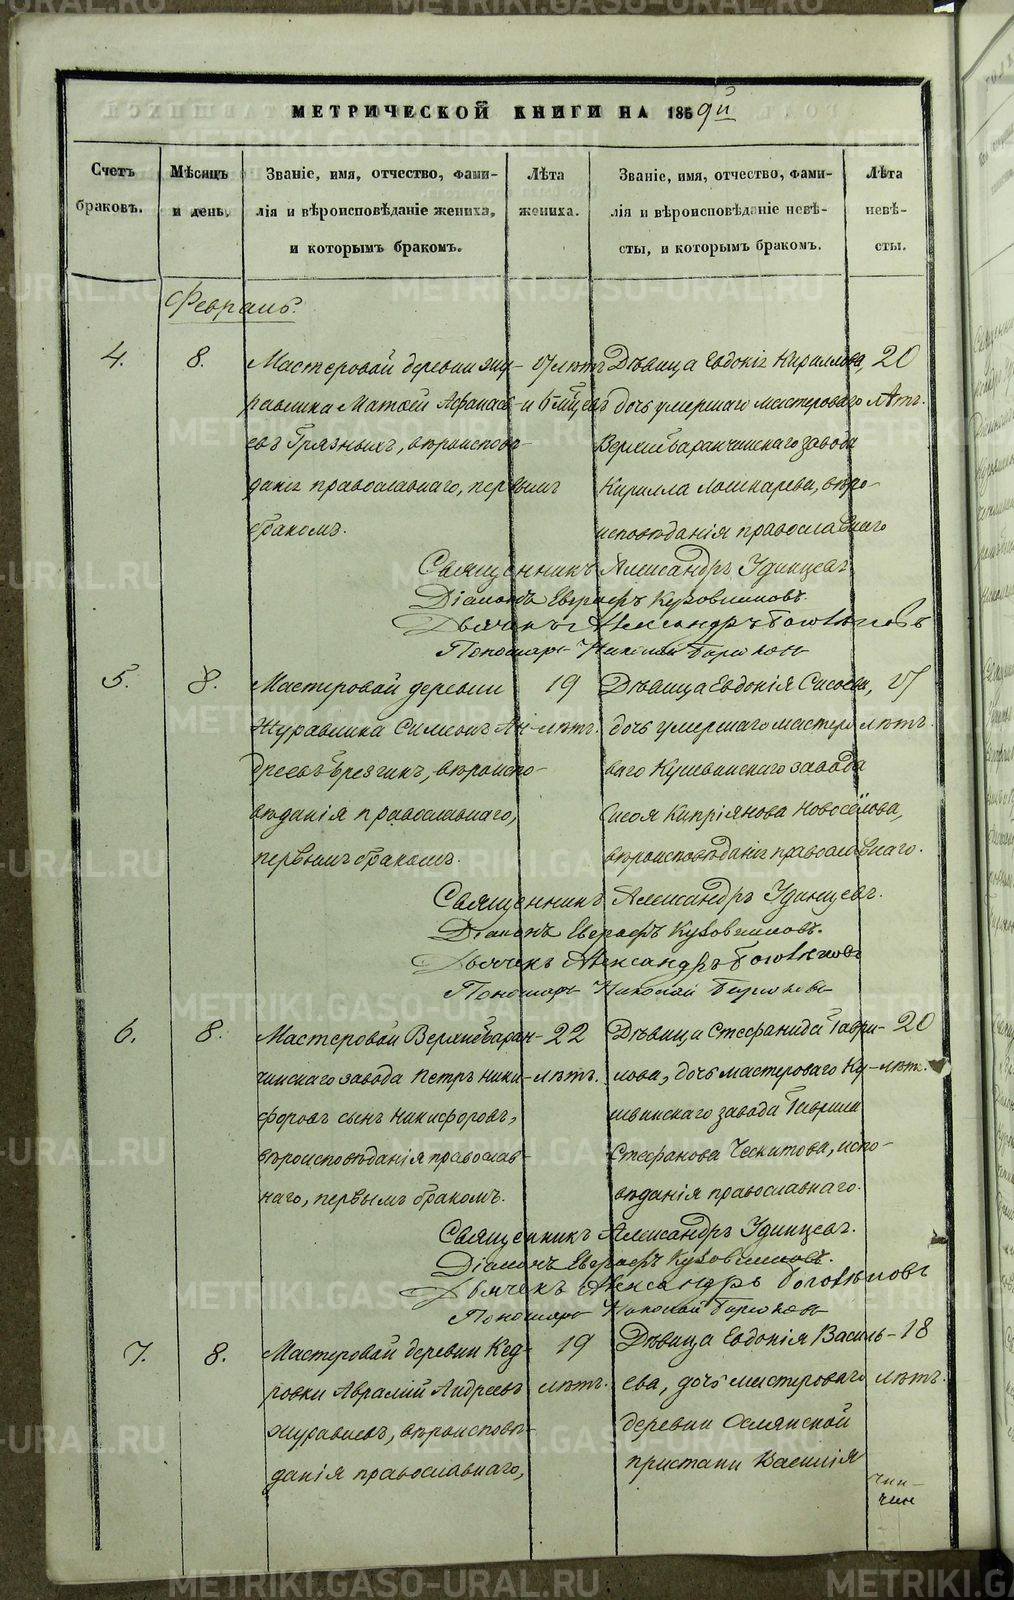 МЕТРИЧЕСКОЙ КНИГИ НА 1869й
Счетъ браковъ.
Мѣсяцъ и день.
Званіе, имя, отчество, фами-
лія и вѣроисповѣданіе жениха,
и которымъ бракомъ.
Лѣта жениха.
Званіе, имя, отчество, фами-
лія и вѣроисповѣданіе невѣ-
сты, и которымъ бракомъ.
Лѣта невѣ-
сты.
Февраль.
4.
8.
Мастеровой деревни Жу-
равлика Матѳей Аѳанась-
евъ Грязныхъ, вѣроисповѣ-
данія православнаго, первымъ
бракомъ.
17 лѣтъ
и 6 мцевъ
Дѣвица Евдокія Кириллова,
дочь умершаго мастероваго
Верхнебаранчинскаго завода
Кирилла Лошкарева, вѣро-
исповѣданія православнаго
20
лѣтъ.
Священникъ Александръ Удинцевъ
Діаконъ Евграфъ Кузовниковъ.
Дьячекъ Александръ Боголѣповъ
Пономарь Николай
5.
8.
Мастеровой деревни
Журавлика Симеонъ Ан-
дреевъ Брезгинъ, вѣроиспо-
вѣданія православнаго,
первымъ бракомъ.
19
лѣтъ.
Дѣвица Евдокія Сысоева,
дочь умершаго мастеро-
ваго Кушвинскаго завода
Сысоя Кипріянова Новосёлова,
вѣроисповѣданія православнаго.
17
лѣтъ.
Священникъ Александръ Удинцевъ.
Діаконъ Евграфъ Кузовниковъ.
Дьячекъ Александръ Боголѣповъ
Пономарь Николай
6.
8.
Мастеровой Верхнебаран-
чинскаго завода Петръ Ники-
форовъ сынъ Никифоровъ,
вѣроисповѣданія православ-
наго, первымъ бракомъ.
22
лѣтъ.
Дѣвица Стефанида Гаври-
лова, дочь мастероваго Ку-
швинскаго завода Гавриила
Стефанова испо-
вѣданія православнаго.
20
лѣтъ.
Священникъ Александръ Удинцевъ.
Діаконъ Евграфъ Кузовниковъ.
Дьячекъ Александръ Боголѣповъ
Пономарь Николай
7.
8.
Мастеровой деревни Кед-
ровки Аврамій Андреевъ
Журавлевъ, вѣроисповѣ-
данія православнаго,
19
лѣтъ.
Дѣвица Евдокія Василь-
ева, дочь мастероваго
деревни Ослянской
пристани Василія
18
лѣтъ.
METRIKI.GASO-URAL.RU